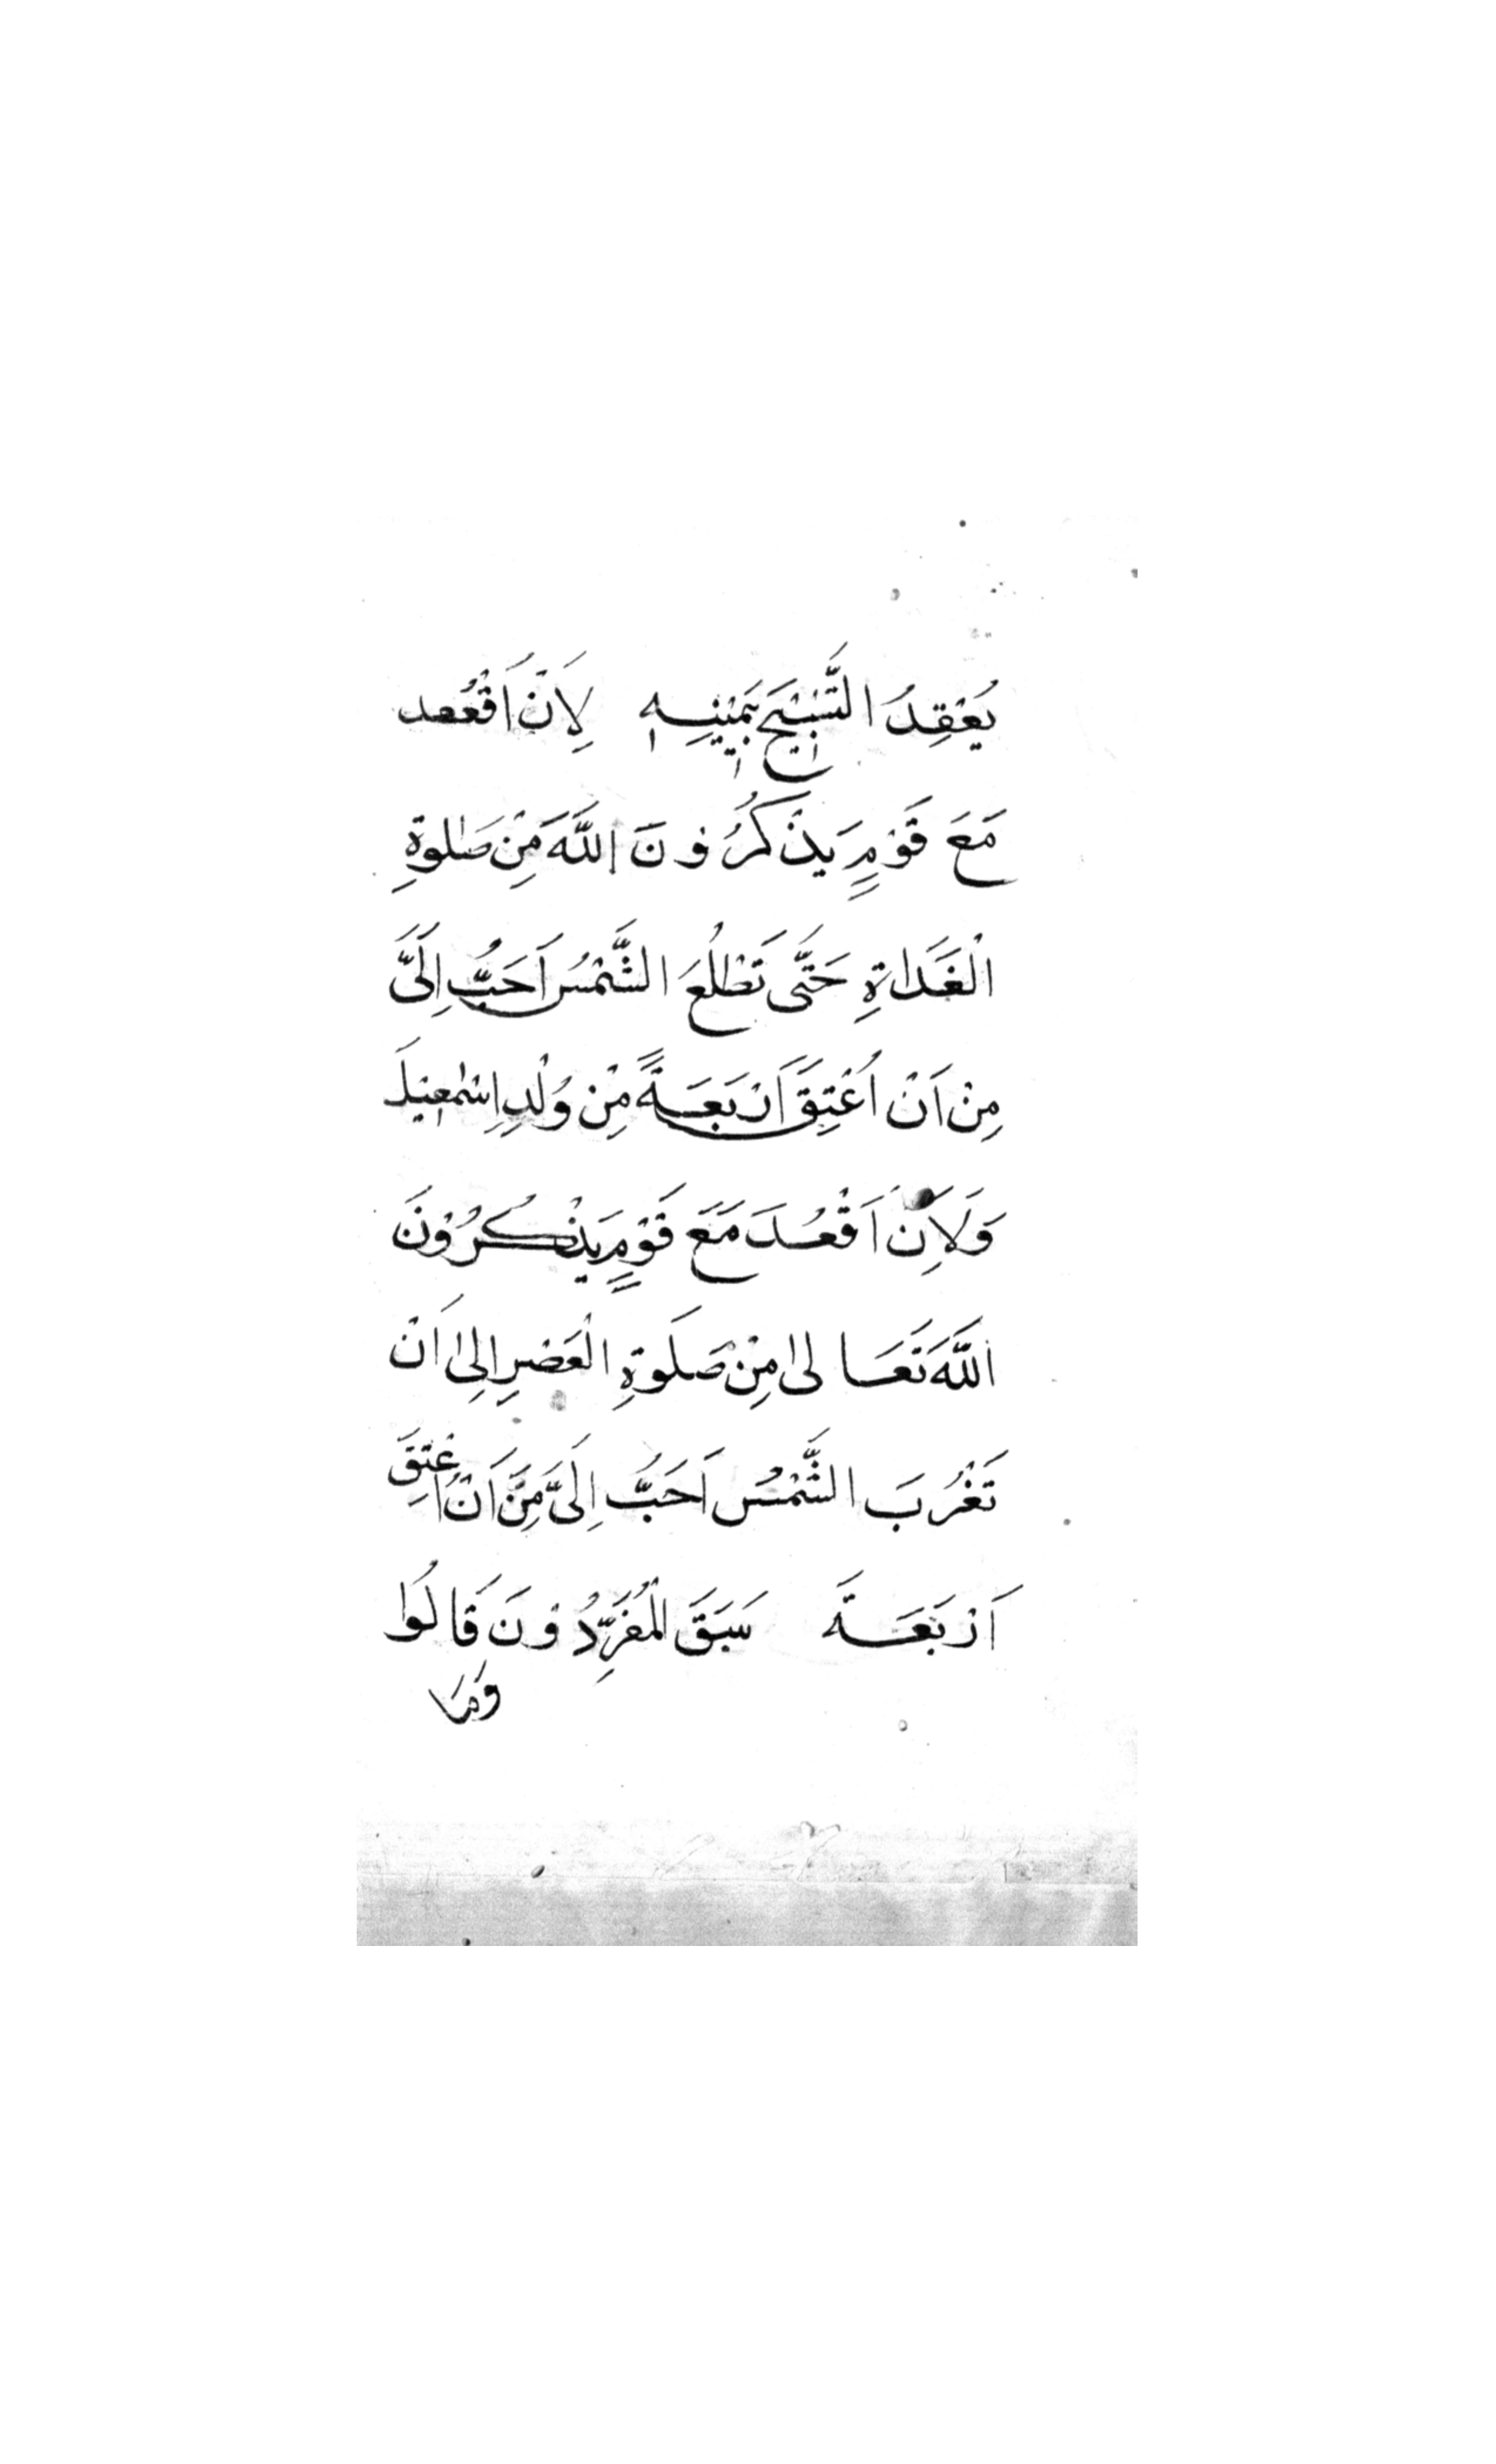 يَعْقِدُ التَّسْبِيْحَ بِيَمِيْنِهٖ لَاَنْ اَقْعُد
مَعَ قَوْمٍ يَذْكُرُوْنَ اللّٰهَ مِنْ صَلٰوةِ
الْغَدَاةِ حَتّٰى تَطْلُعَ الشَّمْسُ اَحَبُّ اِلَىَّ
مِنْ اَنْ اُعْتِقَ اَرْبَعَةً مِنْ وُلْدِ اِسْمٰعِيْلَ
وَلَاَنْ اَقْعُدَ مَعَ قَوْمٍ يَذْكُرُوْنَ
اللّٰهَ تَعَالىٰ مِنْ صَلَوةِ الْعَصْرِ اِلىٰ اَنْ
تَغْرُبَ الشَّمْسُ اَحَبُّ اِلَىَّ مِنْ اَنْ اُعْتِقَ
اَرْبَعَةَ سَبَقَ الْمُفَرِّدُوْنَ قَالُوْا
وَمَا